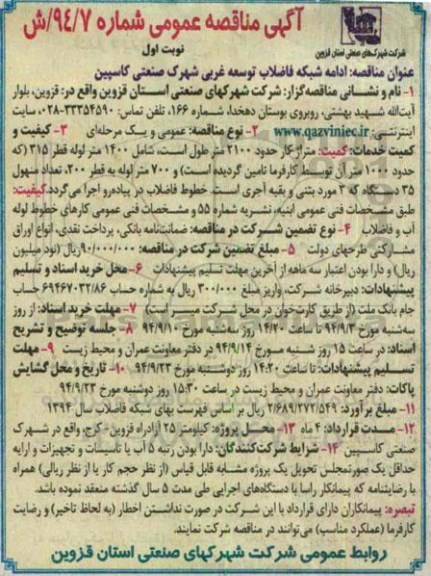 آگهی مناقصه عمومی شماره ۹۴/۷/ش
شرکت شهرک‌های صنعتی استان قزوین
نوبت اول
عنوان مناقصه: ادامه شبکه فاضلاب توسعه غربی شهرک صنعتی کاسپین
۱- نام و نشانی مناقصه‌گزار: شرکت شهرکهای صنعتی استان قزوین واقع در: قزوین، بلوار
آیت‌الله شهید بهشتی، روبروی بوستان دهخدا، شماره ۱۶۶، تلفن تماس: ۳۳۳۵۴۵۹۰-۰۲۸، سایت
اینترنتی: www.qazviniec.ir ۲- نوع مناقصه: عمومی و یک مرحله‌ای ۳- کیفیت و
کمیت خدمات: کمیت: متراژ کار حدود ۲۱۰۰ متر طول است، شامل ۱۴۰۰ متر لوله قطر ۳۱۵ (که
حدود ۱۰۰۰ متر آن توسط کارفرما تامین گردیده است) و ۷۰۰ متر لوله به قطر ۲۰۰، تعداد منهول
۳۵ دستگاه که ۳ مورد بتنی و بقیه آجری است. خطوط فاضلاب در پیاده‌رو اجرا می‌گردد. کیفیت:
طبق مشخصات فنی عمومی ابنیه، نشریه شماره ۵۵ و مشخصات فنی عمومی کارهای خطوط لوله
آب و فاضلاب ۴- نوع تضمین شرکت در مناقصه: ضمانت‌نامه بانکی، پرداخت نقدی، انواع اوراق
مشارکتی طرحهای دولت ۵- مبلغ تضمین شرکت در مناقصه: ۹۰/۰۰۰/۰۰۰ ریال (نود میلیون
ریال) و دارا بودن اعتبار سه ماهه از آخرین مهلت تسلیم پیشنهادات ۶- محل خرید اسناد و تسلیم
پیشنهادات: دبیرخانه شرکت، واریز مبلغ ۳۰۰/۰۰۰ ریال به شماره حساب ۶۹۴۶۷۰۳۲/۸۶ حساب
جام بانک ملت (از طریق کارت‌خوان در محل شرکت میسر است) ۷- مهلت خرید اسناد: از روز
سه‌شنبه مورخ ۹۴/۹/۳ تا ساعت ۱۴/۲۰ روز سه‌شنبه مورخ ۹۴/۹/۱۰ ۸- جلسه توضیح و تشریح
اسناد: در ساعت ۱۵ روز شنبه مورخ ۹۴/۹/۱۴ در دفتر معاونت عمران و محیط زیست ۹- مهلت
تسلیم پیشنهادات: تا ساعت ۱۴:۲۰ روز دوشنبه مورخ ۹۴/۹/۲۳ ۱۰- تاریخ و محل گشایش
پاکات: دفتر معاونت عمران و محیط زیست در ساعت ۱۵:۳۰ روز دوشنبه مورخ ۹۴/۹/۲۳
۱۱- مبلغ برآورد: ۲/۶۸۹/۲۷۲/۵۴۹ ریال بر اساس فهرست بهای شبکه فاضلاب سال ۱۳۹۴
۱۲- مدت قرارداد: ۴ ماه ۱۳- محل پروژه: کیلومتر ۲۵ آزادراه قزوین- کرج، واقع در شهرک
صنعتی کاسپین ۱۴- شرایط شرکت‌کنندگان: دارا بودن رتبه ۵ آب یا تاسیسات و تجهیزات و ارایه
حداقل یک صورتمجلس تحویل یک پروژه مشابه قابل قیاس (از نظر حجم کار یا از نظر ریالی) همراه
با رضایتنامه که پیمانکار راسا با دستگاه‌های اجرایی طی مدت ۵ سال گذشته منعقد نموده باشد.
تبصره: پیمانکاران دارای قرارداد با این شرکت در صورت نداشتن اخطار (به لحاظ تاخیر) و رضایت
کارفرما (عملکرد مناسب) می‌توانند در مناقصه شرکت نمایند.
روابط عمومی شرکت شهرکهای صنعتی استان قزوین